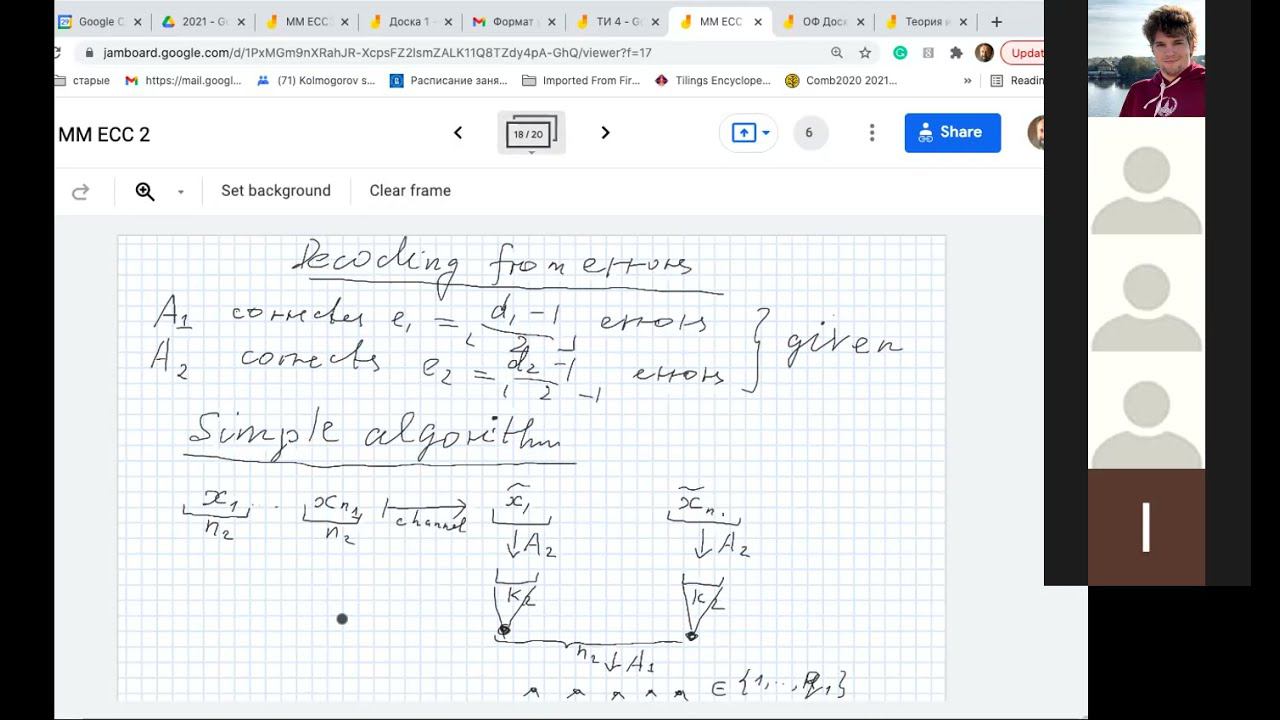 Google C
2021 - Go
MM ECC
Доска 1 -
Формат
ТИ 4 - Go
MM ECC
ОФ Дос
Теория и
jamboard.google.com/d/1PxMGm9nXRahJR-XcpsFZ2lsmZALK11Q8TZdy4pA-GhQ/viewer?f=17
Updat
старые
https://mail.googl...
(71) Kolmogorov s...
Расписание заня...
Imported From Fir...
Tilings Encyclope...
Comb2020 2021...
»
Readin
MM ECC 2
18 / 20
6
Share
Set background
Clear frame
Decoding from errors
A₁ corrects e₁ = ⌊(d₁ - 1)/2⌋ errors
A₂ corrects e₂ = ⌊(d₂ - 1)/2⌋ errors
} given
Simple algorithm
x₁ . . xₙ₁ ⟼ x̃₁ x̃ₙ.
n₂ n₂ channel
↓A₂ ↓A₂
k₂ k₂
n₂ ↓A₁
∈ {1,..., q₁}
I